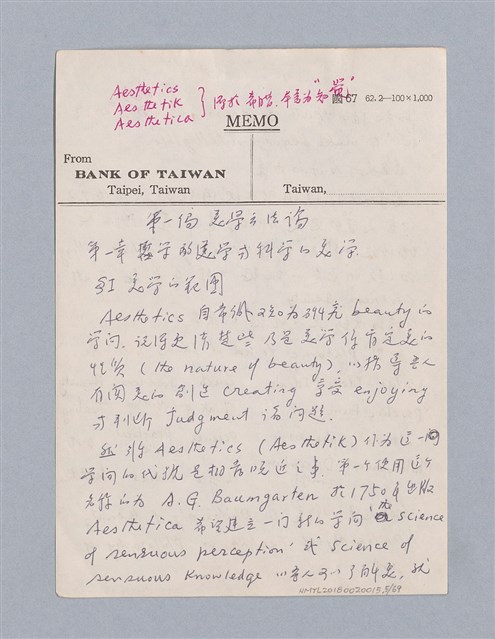 Aesthetics
Aesthetik } 源於希臘,本意為"知覺"
Aesthetica
國67 62.2—100×1,000
MEMO
From
BANK OF TAIWAN
Taipei, Taiwan
Taiwan,
第一編 美學方法論
第一章 哲學的美學与科學的美學
§I 美學的範圍
Aesthetics 自希臘 為研究 beauty 的
学问. 說得更清楚些 乃是美学 肯定美的
性質 (the nature of beauty), 以指導吾人
有関美的創造 creating 享受 enjoying
与判断 Judgment 諸问題.
然 將 Aesthetics (Aesthetik) 作為這一門
学问的代號是相當晚近之事. 第一个使用這个
名稱的為 A.G. Baumgarten 於1750年出版
Aesthetica 希望建立一门新的学问 'the Science
of sensuous perception' 或 Science of
sensuous Knowledge
NMTL20180020015,5/69